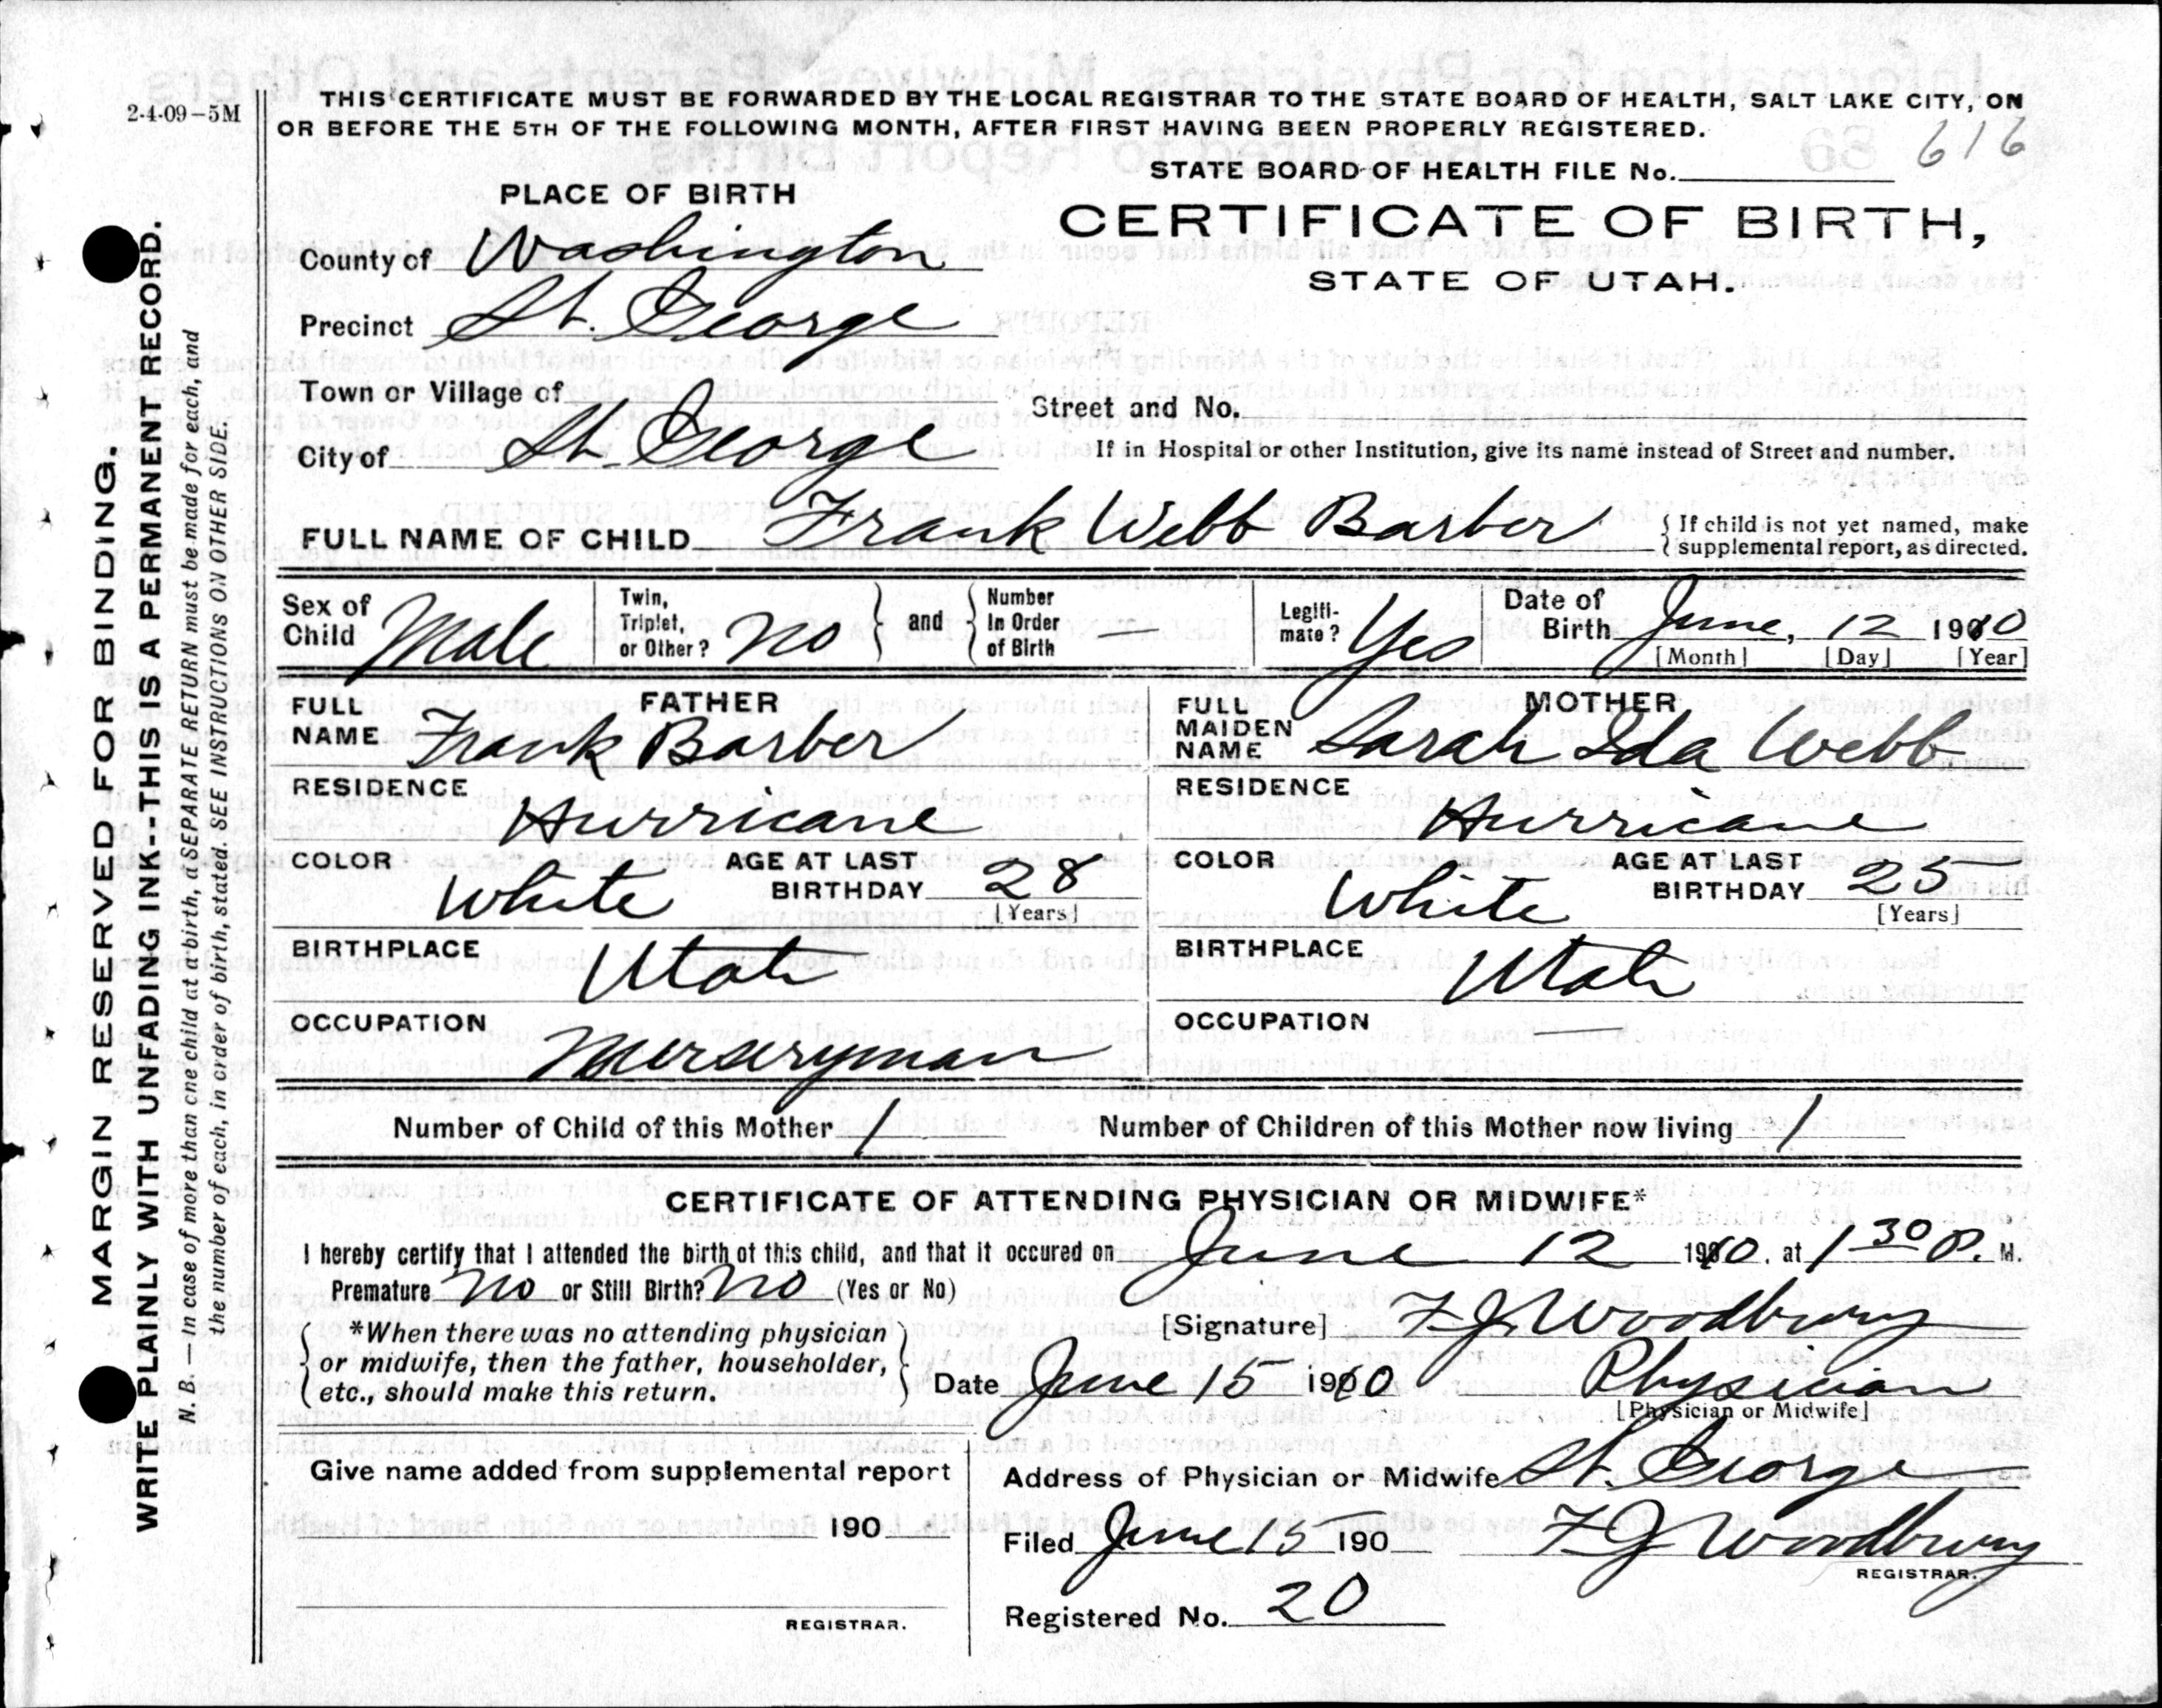 2-4-09-5M
THIS CERTIFICATE MUST BE FORWARDED BY THE LOCAL REGISTRAR TO THE STATE BOARD OF HEALTH, SALT LAKE CITY, ON
OR BEFORE THE 5TH OF THE FOLLOWING MONTH, AFTER FIRST HAVING BEEN PROPERLY REGISTERED.
STATE BOARD OF HEALTH FILE No. 616
CERTIFICATE OF BIRTH,
STATE OF UTAH.
PLACE OF BIRTH
County of Washington
Precinct St. George
Town or Village of
City of St. George
Street and No.
If in Hospital or other Institution, give its name instead of Street and number.
FULL NAME OF CHILD Frank Webb Barber
{ If child is not yet named, make
supplemental report, as directed.
Sex of Child Male
Twin, Triplet, or Other? No } and { Number In Order of Birth —
Legiti-mate? Yes
Date of Birth June, 12 1910
[Month] [Day] [Year]
FATHER
FULL NAME Frank Barber
RESIDENCE
Hurricane
COLOR White AGE AT LAST BIRTHDAY 28
[Years]
BIRTHPLACE
Utah
OCCUPATION
Nurseryman
MOTHER
FULL MAIDEN NAME Sarah Ida Webb
RESIDENCE
Hurricane
COLOR White AGE AT LAST BIRTHDAY 25
[Years]
BIRTHPLACE
Utah
OCCUPATION —
Number of Child of this Mother 1 Number of Children of this Mother now living 1
CERTIFICATE OF ATTENDING PHYSICIAN OR MIDWIFE*
I hereby certify that I attended the birth of this child, and that it occured on June 12 1910. at 1 30 P. M.
Premature No or Still Birth? No (Yes or No)
{ *When there was no attending physician
or midwife, then the father, householder,
etc., should make this return. }
[Signature] F J Woodbury
Date June 15 1910 Physician
[Physician or Midwife]
Give name added from supplemental report
190
REGISTRAR.
Address of Physician or Midwife St. George
Filed June 15 190 F J Woodbury
REGISTRAR.
Registered No. 20
MARGIN RESERVED FOR BINDING
WRITE PLAINLY WITH UNFADING INK--THIS IS A PERMANENT RECORD.
N. B. — In case of more than one child at a birth, a SEPARATE RETURN must be made for each, and
the number of each, in order of birth, stated. SEE INSTRUCTIONS ON OTHER SIDE.